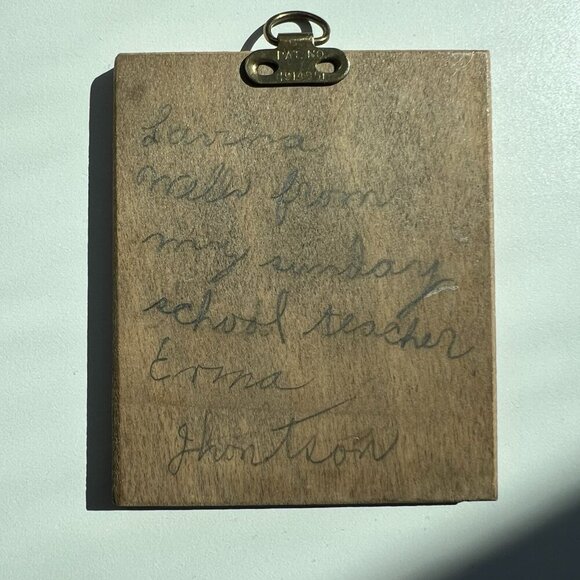 PAT. NO.
1914951
Lavina
Wells from
my sunday
school teacher
Erma
Jhontson